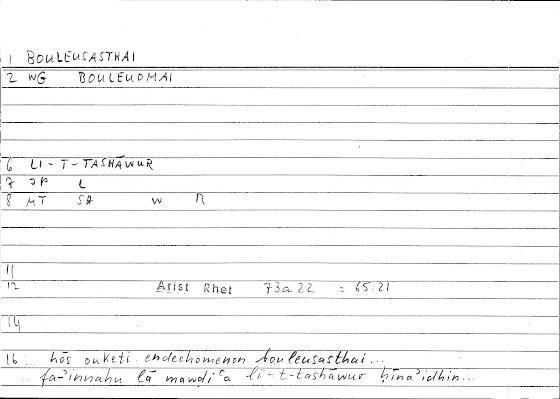 1 BOULEUSASTHAI
2 WG BOULEUOMAI
6 LI-T-TASHĀWUR
7 JP L
8 MT SH W R
11
12 Arist Rhet 73a22 = 65.21
14
16 .. hōs ouketi endechomenon bouleusasthai...
.. fa-'innahu lā mawḍiʿa li-t-tashāwur ḥīna'idhin...